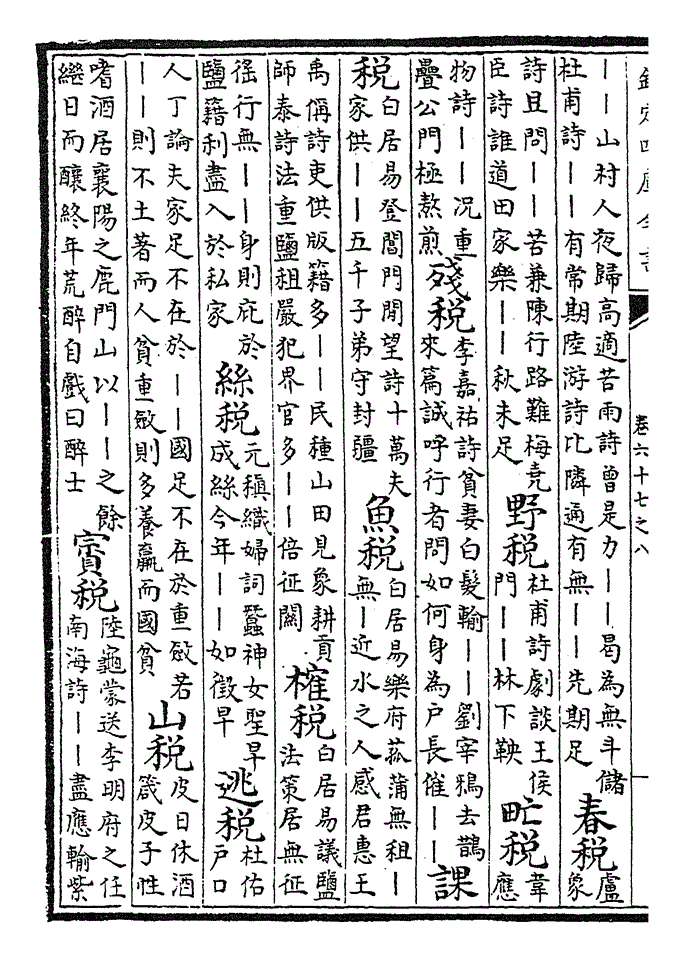 欽定四庫全書
卷六十七之八
丨丨山村人夜歸高適苦雨詩曾是力丨丨曷為無斗儲
杜甫詩丨丨有常期陸游詩比隣通有無丨丨先期足
春税
盧
象
詩且問丨丨苦兼陳行路難梅堯
臣詩誰道田家樂丨丨秋未足
野税
杜甫詩劇談王侯
門丨丨林下鞅
甿税
韋
應
物詩丨丨况重
疊公門極熬煎
殘税
李嘉祐詩貧妻白髮輸丨丨劉宰鴉去鵲
來篇誠呼行者問如何身為户長催丨丨
課
税
白居易登閶門閒望詩十萬夫
家供丨丨五千子弟守封疆
魚税
白居易樂府菰蒲無租丨
無丨丨近水之人感君惠王
禹偁詩吏供版籍多丨丨民種山田見象耕貢
師泰詩法重鹽租嚴犯界官多丨丨倍征關
榷税
白居易議鹽
法策居無征
徭行無丨丨身則庇於
鹽籍利盡入於私家
絲税
元稹織婦詞蠶神女聖早
成絲今年丨丨如徵早
逃税
杜佑
户口
人丁論夫家足不在於丨丨國足不在於重斂若
丨丨則不土著而人貧重斂則多養羸而國貧
山税
皮日休酒
箴皮子性
嗜酒居襄陽之鹿門山以丨丨之餘
繼日而釀終年荒醉自戲曰醉士
賓税
陸龜蒙送李明府之任
南海詩丨丨盡應輸紫